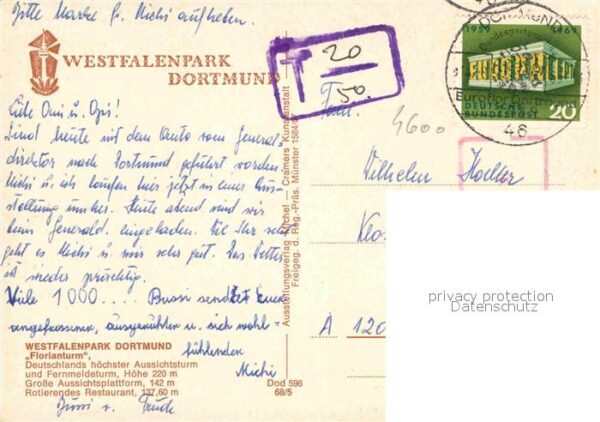 Bitte Marke für Michi aufheben.
WESTFALENPARK
DORTMUND
Liebe Omi u. Opi!
Sind heute mit dem Auto vom General-
direktor nach Dortmund geführt worden.
Michi u. ich laufen hier jetzt in einer Aus-
stellung umher. Heute abend sind wir
beim Generald. eingeladen. Wie Ihr seht
geht es Michi u. mir sehr gut. Das Wetter
ist wieder prächtig.
Viele 1000.... Bussi sendet Euer
angefressener, ausgeruhter u. sich wohl-
fühlenden
Michi
WESTFALENPARK DORTMUND
„Florianturm",
Deutschlands höchster Aussichtsturm
und Fernmeldeturm, Höhe 220 m
Große Aussichtsplattform, 142 m
Rotierendes Restaurant, 137,60 m
Dod 596
68/5
Bussi
Ausstellungsverlag Michel — Cramers Kunstanstalt
Freigeg. d. Reg.-Präs. Münster 15840
T 20
50
4600
1959 1969
DORTMUND
Bundesgartenschau
Euroflor Dortmund
DEUTSCHE
BUNDESPOST 20
46
Wilhelm
A 120
privacy protection
Datenschutz